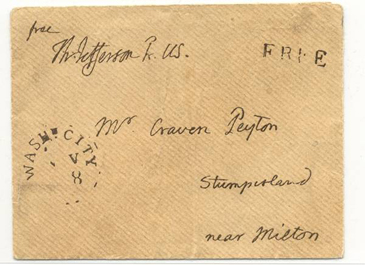 free
Th: Jefferson Pr. US.
FREE
Mr Craven Peyton
WASH. CITY
Stumpisland
near Milton